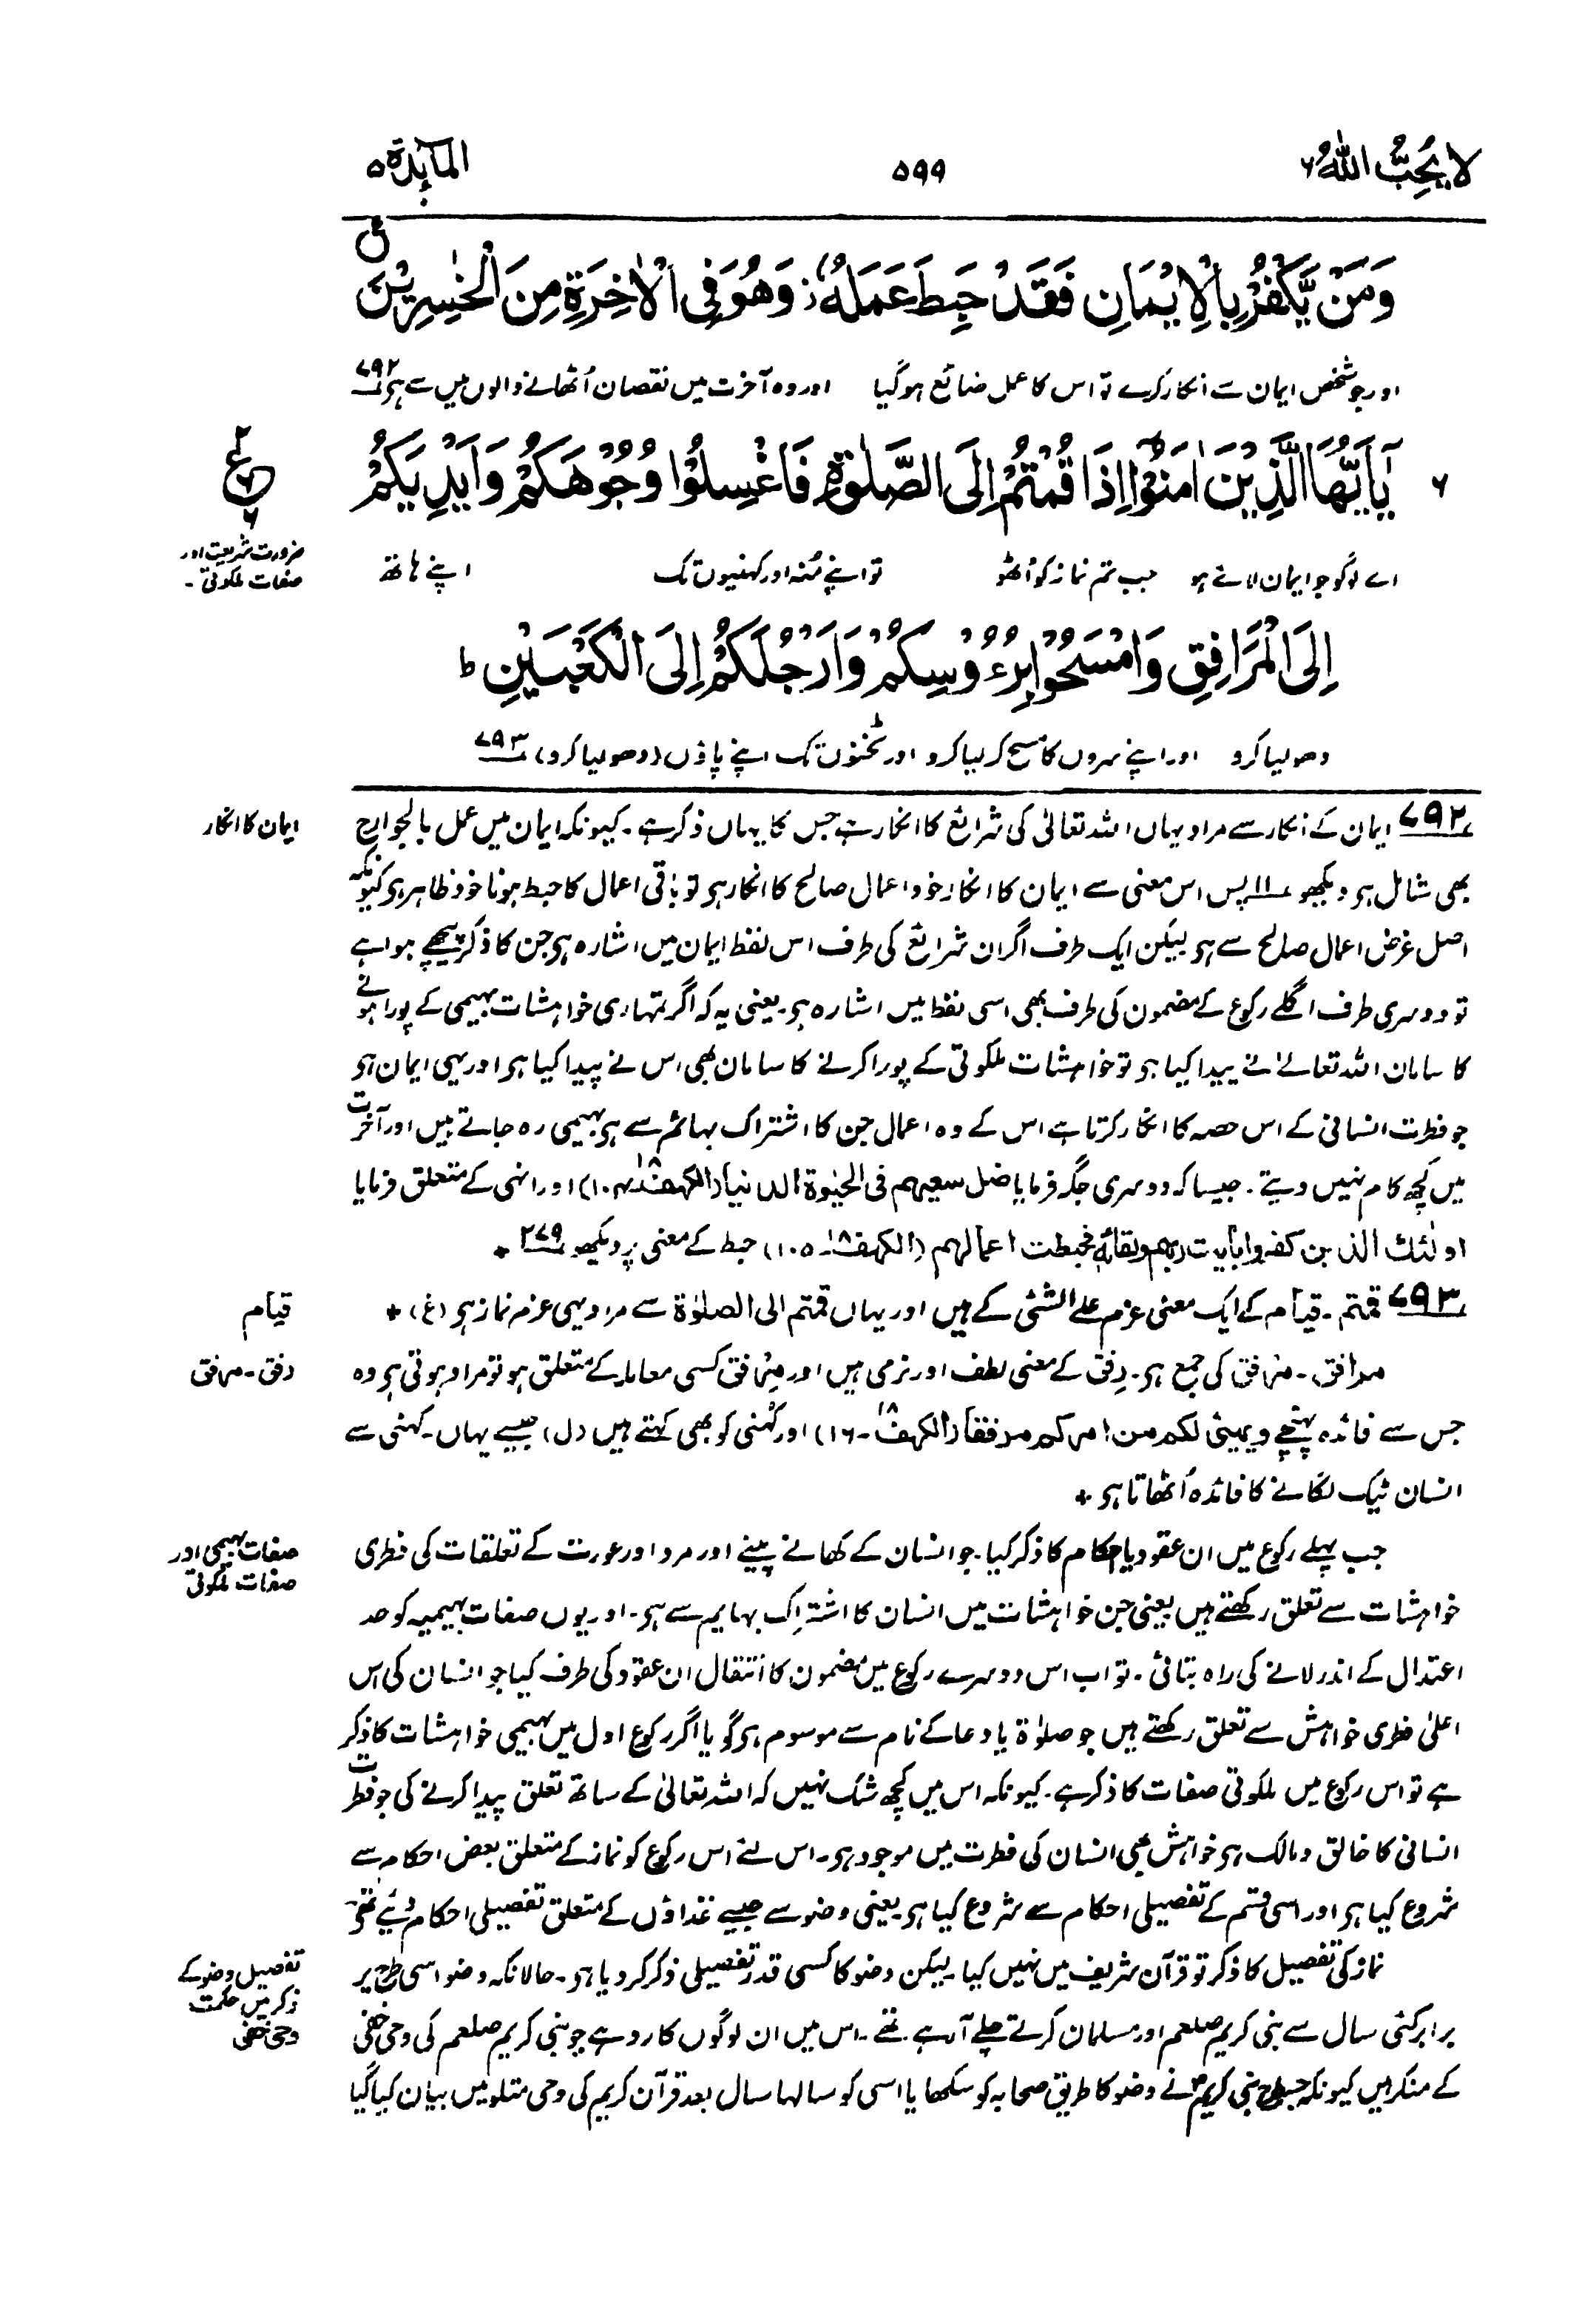 لا یحب اللہ ۶
۵۹۹
المآئدۃ ۵
وَمَنْ يَّكْفُرْ بِالْاِيْمَانِ فَقَدْ حَبِطَ عَمَلُهٗ ز وَهُوَ فِى الْاٰخِرَةِ مِنَ الْخٰسِرِيْنَ
اور جو شخص ایمان سے انکار کرے تو اس کا عمل ضائع ہوگیا اور وہ آخرت میں نقصان اُٹھانے والوں میں سے ہی ۷۹۲
۶ يٰٓاَيُّهَا الَّذِيْنَ اٰمَنُوْٓا اِذَا قُمْتُمْ اِلَى الصَّلٰوةِ فَاغْسِلُوْا وُجُوْهَكُمْ وَاَيْدِيَكُمْ
۲ ع ۶ ۶
ضرورت شریعت اور
صفات ملکوتی۔
اے لوگو جو ایمان لائے ہو جب تم نماز کو اُٹھو تو اپنے مُنہ اور کہنیوں تک اپنے ہاتھ
اِلَى الْمَرَافِقِ وَامْسَحُوْا بِرُءُوْسِكُمْ وَاَرْجُلَكُمْ اِلَى الْكَعْبَيْنِ ط
دھو لیا کرو اور اپنے سروں کا مسح کر لیا کرو اور ٹخنوں تک اپنے پاؤں (دھو لیا کرو) ۷۹۳
۷۹۲ ایمان کے انکار سے مراد یہاں اللہ تعالیٰ کی شرائع کا انکار ہے جس کا یہاں ذکر ہے۔ کیونکہ ایمان میں عمل بالجوارح
ایمان کا انکار
بھی شامل ہو دیکھو ۱۱ پس اس معنی سے ایمان کا انکار خود اعمال صالح کا انکار ہو تو باقی اعمال کا حبط ہونا خود ظاہر ہو کیونکہ
اصل غرض اعمال صالح سے ہو لیکن ایک طرف اگر ان شرائع کی طرف اس لفظ ایمان میں اشارہ ہو جن کا ذکر پیچھے ہوا ہے
تو دوسری طرف اگلے رکوع کے مضمون کی طرف بھی اسی لفظ میں اشارہ ہو۔ یعنی یہ کہ اگر تمہاری خواہشات بہیمی کے پورا ہونے
کا سامان اللہ تعالےٰ نے پیدا کیا ہو تو خواہشات ملکوتی کے پورا کرنے کا سامان بھی اس نے پیدا کیا ہو اور یہی ایمان ہو
جو فطرت انسانی کے اس حصہ کا انکار کرتا ہے اس کے وہ اعمال جن کا اشتراک بہائم سے ہو بہیمی رہ جاتے ہیں اور آخرت
میں کچھ کام نہیں دیتے۔ جیسا کہ دوسری جگہ فرمایا ضل سعیہم فی الحیٰوۃ الدنیا (الکہف ۱۸۔۱۰۴) اور انہی کے متعلق فرمایا
اولٰئک الذین کفروا باٰیٰت ربہم ولقائہ فحبطت اعمالہم (الکہف ۱۸۔۱۰۵) حبط کے معنی پر دیکھو ۲۷۹ +
۷۹۳ قمتم۔ قیام کے ایک معنی عزم علے الشئی کے ہیں اور یہاں قمتم الی الصلوٰۃ سے مراد یہی عزم نماز ہو (غ) +
قیام
مرافق۔ مرفق کی جمع ہو۔ رِفق کے معنی لطف اور نرمی ہیں اور مِرفق کسی معاملہ کے متعلق ہو تو مراد ہوتی ہو وہ
رفق۔ مرفق
جس سے فائدہ پہنچے ویہیئ لکم من امرکم مرفقا (الکہف ۱۸۔۱۶) اور کہنی کو بھی کہتے ہیں (ل) جیسے یہاں۔ کہنی سے
انسان ٹیک لگانے کا فائدہ اُٹھاتا ہو +
جب پہلے رکوع میں ان عقود یا احکام کا ذکر کیا۔ جو انسان کے کھانے پینے اور مرد اور عورت کے تعلقات کی فطری
صفات بہیمی اور
صفات ملکوتی
خواہشات سے تعلق رکھتے ہیں یعنی جن خواہشات میں انسان کا اشتراک بہایم سے ہو۔ اور یوں صفات بہیمیہ کو حد
اعتدال کے اندر لانے کی راہ بتائی۔ تو اب اس دوسرے رکوع میں مضمون کا انتقال ان عقود کی طرف کیا جو انسان کی اس
اعلیٰ فطری خواہش سے تعلق رکھتے ہیں جو صلوٰۃ یا دعا کے نام سے موسوم ہو گویا اگر رکوع اول میں بہیمی خواہشات کا ذکر
ہے تو اس رکوع میں ملکوتی صفات کا ذکر ہے۔ کیونکہ اس میں کچھ شک نہیں کہ اللہ تعالیٰ کے ساتھ تعلق پیدا کرنے کی جو فطرت
انسانی کا خالق و مالک ہو خواہش بھی انسان کی فطرت میں موجود ہو۔ اس لئے اس رکوع کو نماز کے متعلق بعض احکام سے
شروع کیا ہو اور اسی قسم کے تفصیلی احکام سے شروع کیا ہو۔ یعنی وضو سے جیسے غذاؤں کے متعلق تفصیلی احکام دئیے تھے۔
نماز کی تفصیل کا ذکر تو قرآن شریف میں نہیں کیا۔ لیکن وضو کا کسی قدر تفصیلی ذکر کر دیا ہو۔ حالانکہ وضو اسی طرح پر
تفصیل وضو کے
ذکر میں حکمت
وحی خفی
برابر کئی سال سے نبی کریم صلعم اور مسلمان کرتے چلے آ رہے تھے۔ اس میں ان لوگوں کا رد ہے جو نبی کریم صلعم کی وحی خفی
کے منکر ہیں کیونکہ جس طرح نبی کریم نے وضو کا طریق صحابہ کو سکھایا اسی کو سالہا سال بعد قرآن کریم کی وحی متلو میں بیان کیا گیا